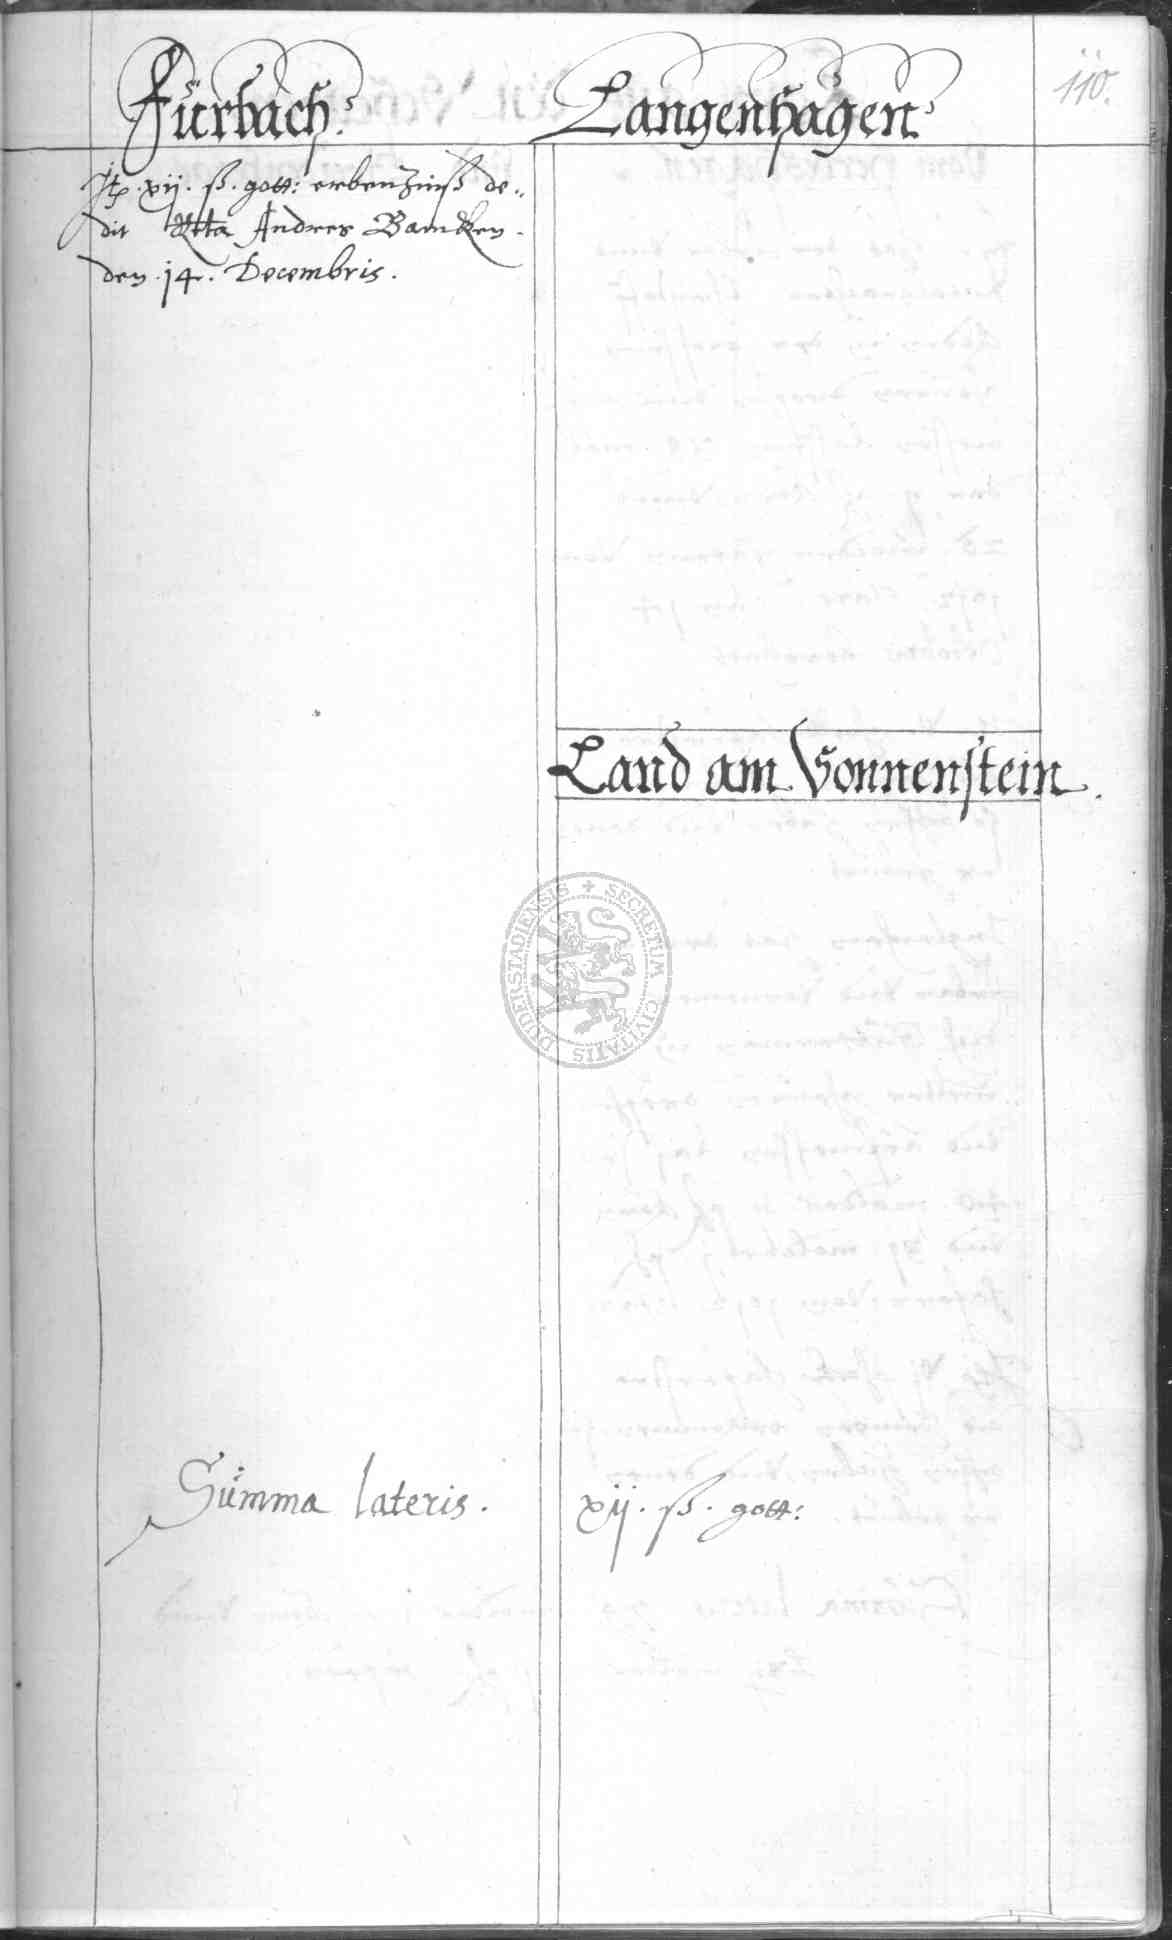 110.
Fürbach.
Jtp. xij. ß. gott: erbenzinß de-
dit Andres Bamcken.
den. 14. Decembris.
Langenhagen.
Land am Sonnenstein.
SECRETUM CIVITATIS DUDERSTADIENSIS
Summa lateris. xij. ß. gott: